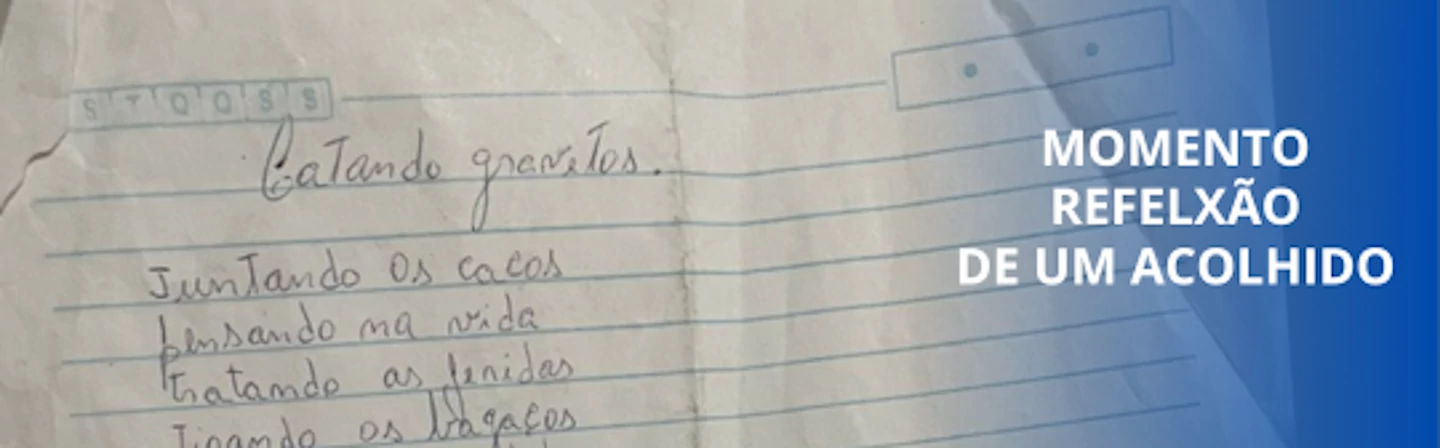 S T Q Q S S
Catando gravetos.
Juntando os cacos
pensando na vida
tratando as feridas
Tirando os bagaços
MOMENTO
REFELXÃO
DE UM ACOLHIDO